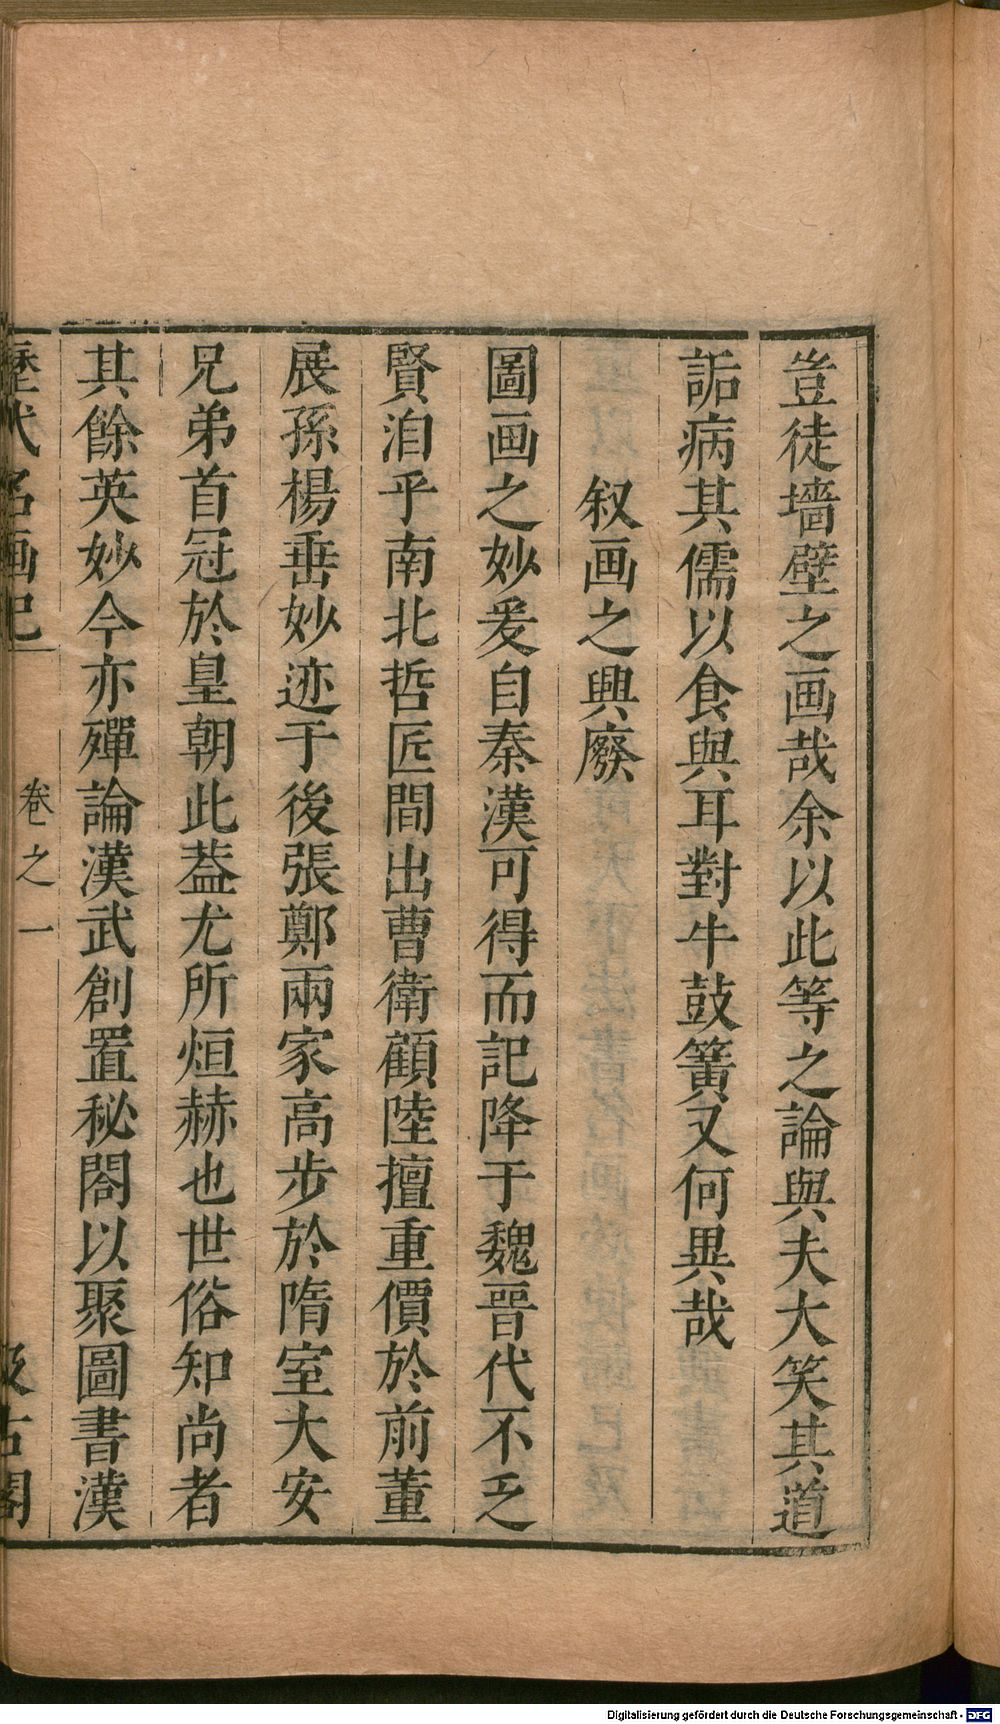 豈徒墻壁之画哉余以此等之論與夫大笑其道
詬病其儒以食與耳對牛鼓簧又何異哉
叙画之興廢
圖画之妙爰自秦漢可得而記降于魏晉代不乏
賢洎乎南北哲匠間出曹衛顧陸擅重價於前董
展孫楊垂妙迹于後張鄭兩家高步於隋室大安
兄弟首冠於皇朝此葢尤所烜赫也世俗知尚者
其餘英妙今亦殫論漢武創置秘閤以聚圖書漢
歷代名画記 卷之一 汲古閣
Digitalisierung gefördert durch die Deutsche Forschungsgemeinschaft - DFG